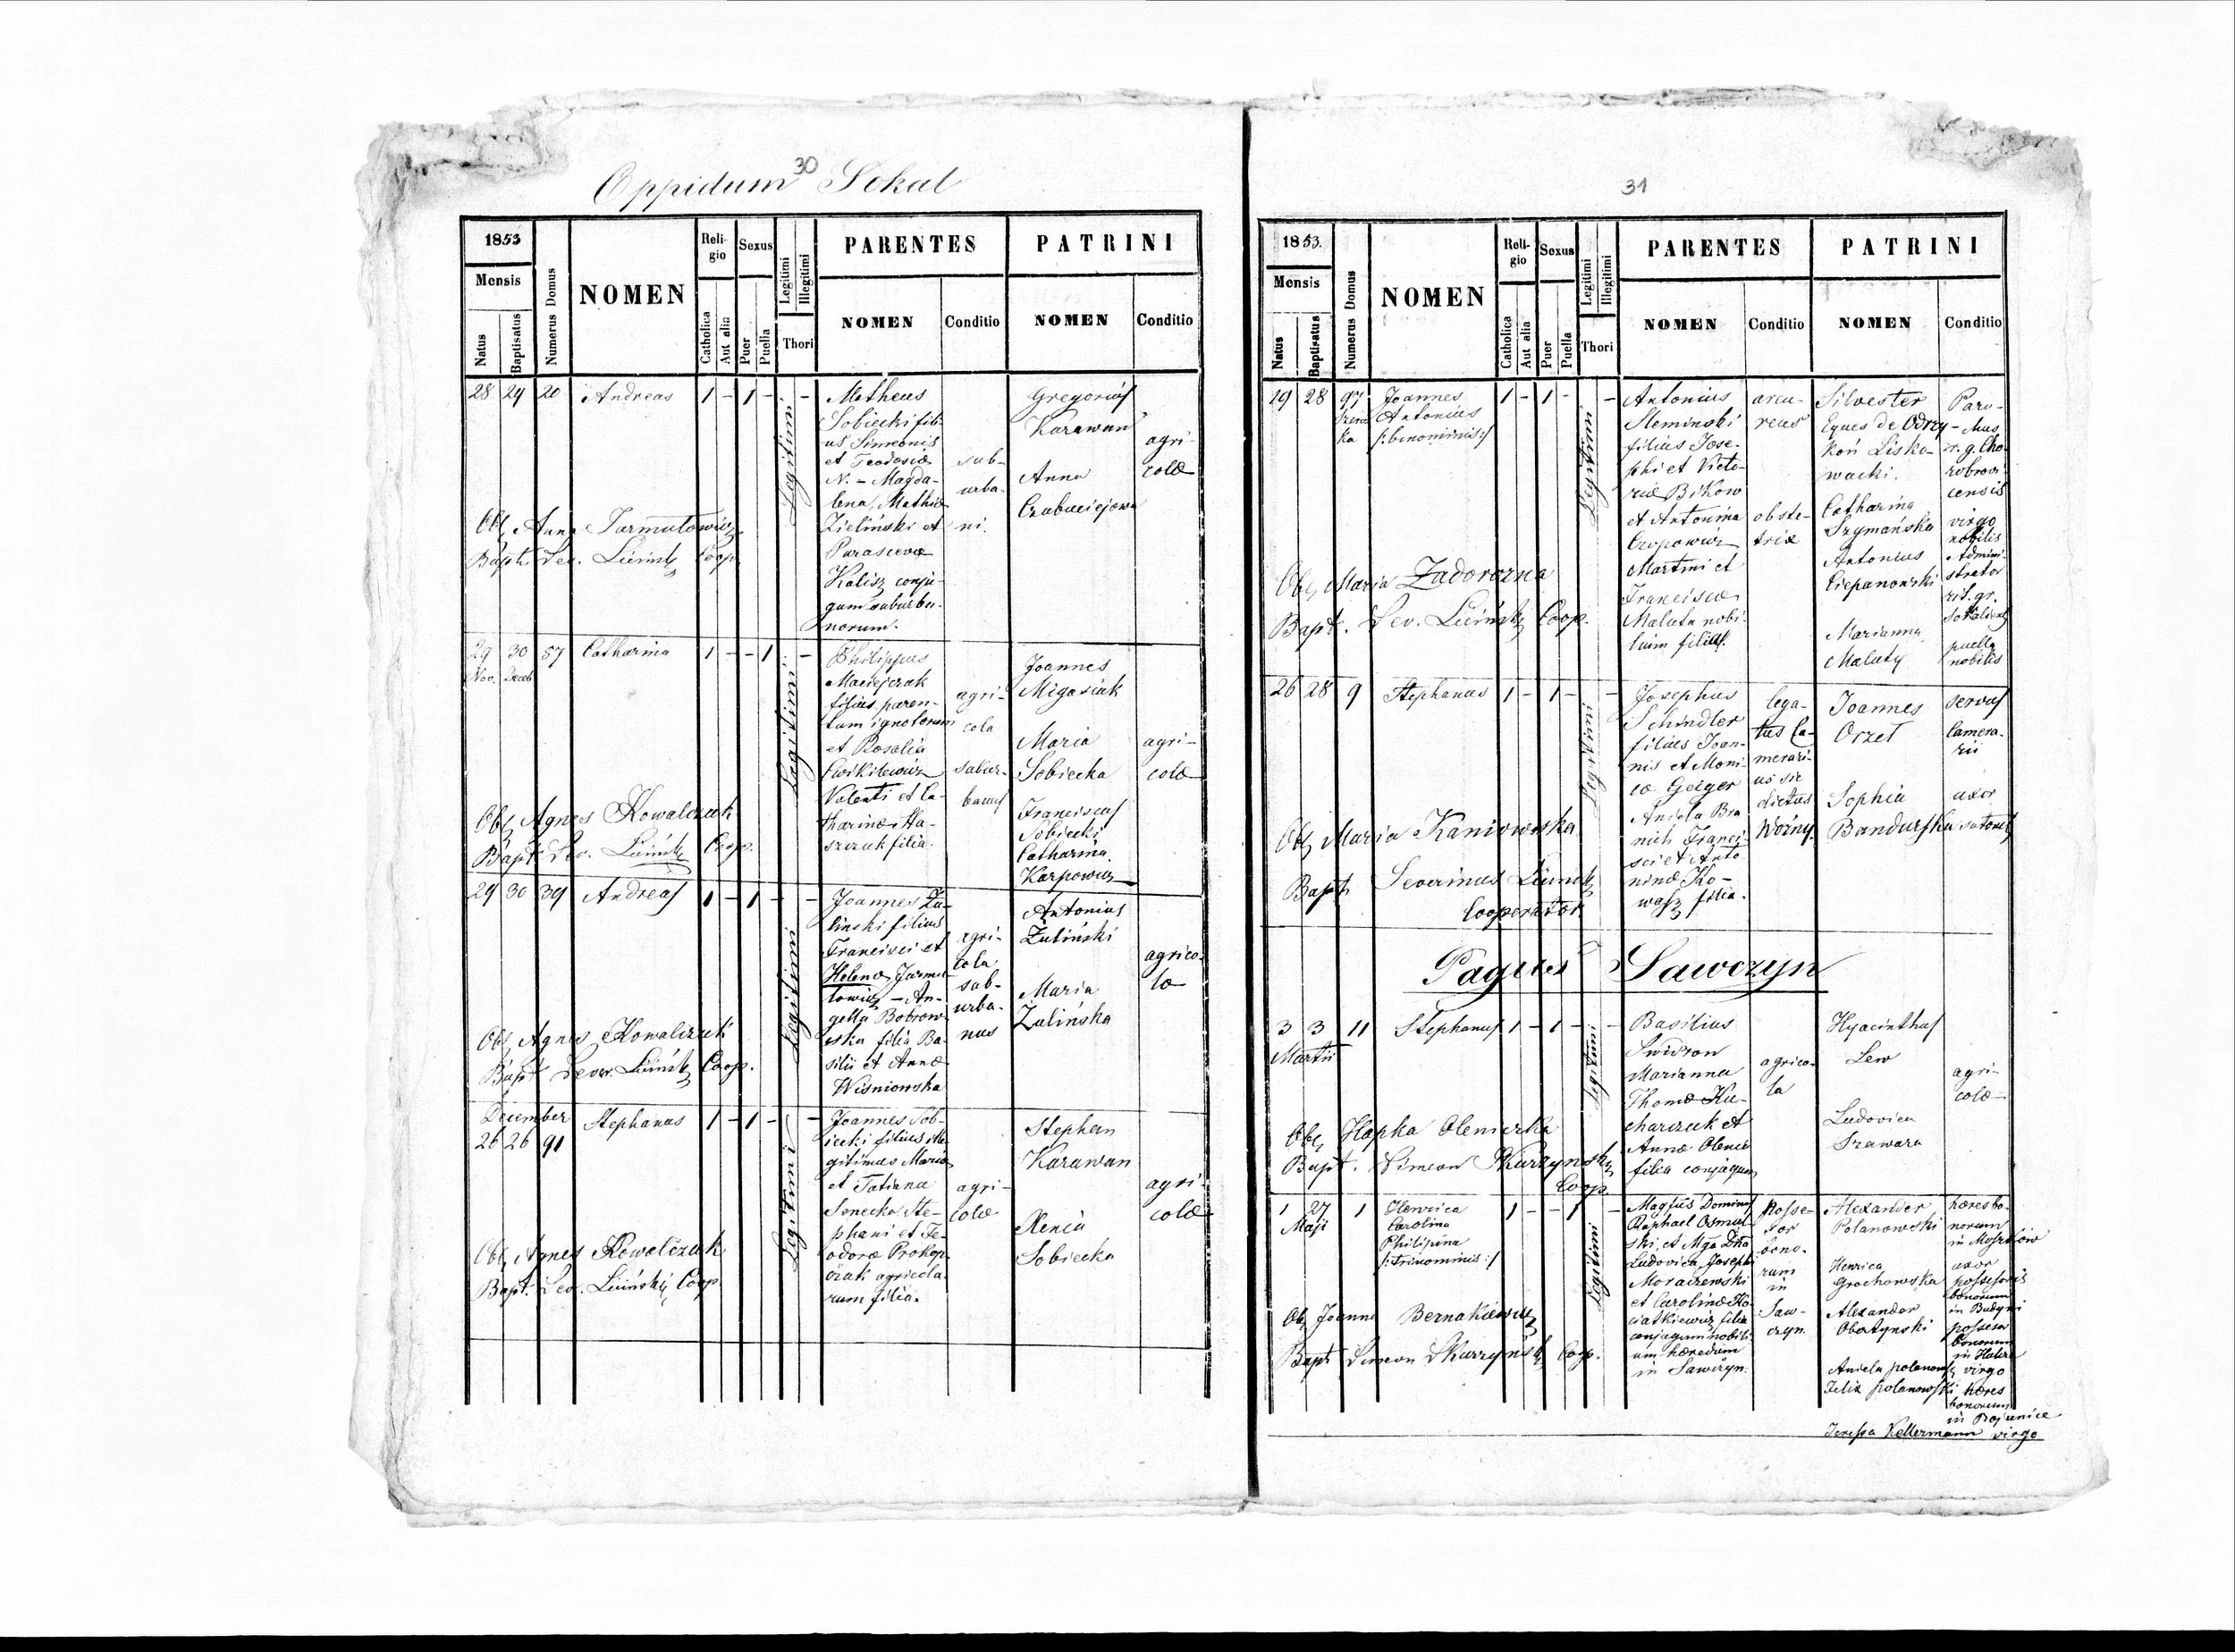 30
Oppidum Sokal
1853
Mensis
Natus
Baptisatus
Numerus Domus
NOMEN
Religio
Catholica
Aut alia
Sexus
Puer
Puella
Legitimi
Illegitimi
Thori
PARENTES
NOMEN
Conditio
PATRINI
NOMEN
Conditio
28 29 20 Andreas 1 - 1 - -
Legitimi
Matheus
Sobiecki fili-
us Simeonis
et Teodosiæ
N. - Magda-
lena, Mathiæ
Zieliński et
Parascevæ
Kalisz conju-
gum suburba-
norum.
sub-
urba-
ni.
Gregorius
Karawan
Anna
agri-
colæ
Obs. Anna Jarmutowicz
Bapt. Sev. Coop.
29 30 57 Catharina 1 - - 1 -
Nov. Deceb
Legitimi
Philippus
Maciejczak
filius paren-
tum ignotorum
et Rosalia
Valenti et Ca-
tharinæ Sta-
szczuk filia.
agri-
cola
subur-
banus
Joannes
Migasiuk
Maria
Sobiecka
Franciscus
Sobiecki
Catharina
Karpowicz
agri-
colæ
Obs. Agnes Kowalczuk
Bapt. Sev. Coop.
29 30 39 Andreas 1 - 1 - -
Legitimi
Joannes Zu-
linski filius
Francisci et
Helenæ Jarmu-
towicz - An-
gella Bobrow-
ska filia Ba-
silii et Annæ
Wisniowska
agri-
cola
sub-
urba-
nus
Antonius
Zuliński
Maria
Zulińska
agrico-
læ
Obs. Agnes Kowalczuk
Bapt. Sever. Coop.
December
26 26 91 Stephanus 1 - 1 - -
Legitimi
Joannes Sob-
iecki filius ille-
gitimus Mariæ
et Tatiana
Senecka, Ste-
phani et Te-
odoræ Prokop-
czak agricola-
rum filia.
agri-
colæ
Stephan
Karawan
Xenia
Sobiecka
agri-
colæ
Obs. Agnes Kowalczuk
Bapt. Sev. Coop.
31
1853.
Mensis
Natus
Baptisatus
Numerus Domus
NOMEN
Religio
Catholica
Aut alia
Sexus
Puer
Puella
Legitimi
Illegitimi
Thori
PARENTES
NOMEN
Conditio
PATRINI
NOMEN
Conditio
19 28 97 Joannes 1 - 1 - -
Antonius
/:binominis:/
Legitimi
Antonius
Sleminski
filius Jose-
phi et Victo-
riæ Bikow
et Antonina
Czopowicz
Martini et
Franciscæ
Maluta nobi-
lium filia.
arcu-
reus
obste-
trix
Silvester
Eques de Odrzy-
koń Lisko-
wacki.
Catharina
Szymańska
Antonius
Ciepanowski
Marianna
Maluty
Paro-
chus
r. g. Cho-
robrovi-
censis
virgo
nobilis
Admini-
strator
rit. gr.
puella
nobilis
Obs. Maria Zadorozna
Bapt. Sev. Coop.
26 28 9 Stephanus 1 - 1 - -
Legitimi
Josephus
Schindler
filius Joan-
nis et Moni-
cæ Geiger
Aniela Bra
nich Franci-
sci et Anto
ninæ Ko-
wasz filia.
lega-
tus Ca-
merari-
us sic
dictus
Woźny.
Joannes
Orzeł
Sophia
Bandurska
servus
Camera-
rii
uxor
sutoris
Obs. Maria Kaniowska
Bapt. Severinus
Cooperator
Pagus Sawczyn
3 3 11 Stephanus 1 - 1 - -
Martii
Legitimi
Basilius
Marianna
Thomæ Ku-
charczuk et
Annæ
filia conjugum
agrico-
la
Hyacinthus
Lew
Ludovica
Szawara
agri-
colæ
Obs. Hapka Oleniczka
Bapt. Simeon Skurzyński
Coop.
1 27 1 Henrica 1 - - 1
Maji
Carolina
Philipina
/:trinominis:/
Legitimi
Magfus Dominus
Raphael Osmul-
ski, et Mga Dna
Ludovica, Josephi
Moraczewski
et Carolinæ Ko-
ciatkiewicz filia
conjugum nobili-
um hæredum
in Sawczyn.
Posse-
sor
bono-
rum
in
Saw-
czyn.
Alexander
Polanowski
Henrica
Grochowska
Alexander
Obertynski
Aniela Polanowska
Felix Polanowski
Teressa Kellermann
hæres bo-
norum
uxor
possessoris
bonorum
possessor
bonorum
virgo
hæres
bonorum
in Bojanice
virgo
Obs. Joanna Bernakiewicz
Bapt. Simeon Skurzyński Coop.